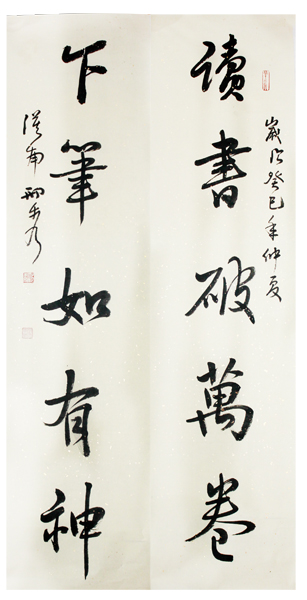 歲次癸巳年仲夏
讀書破萬卷
下筆如有神